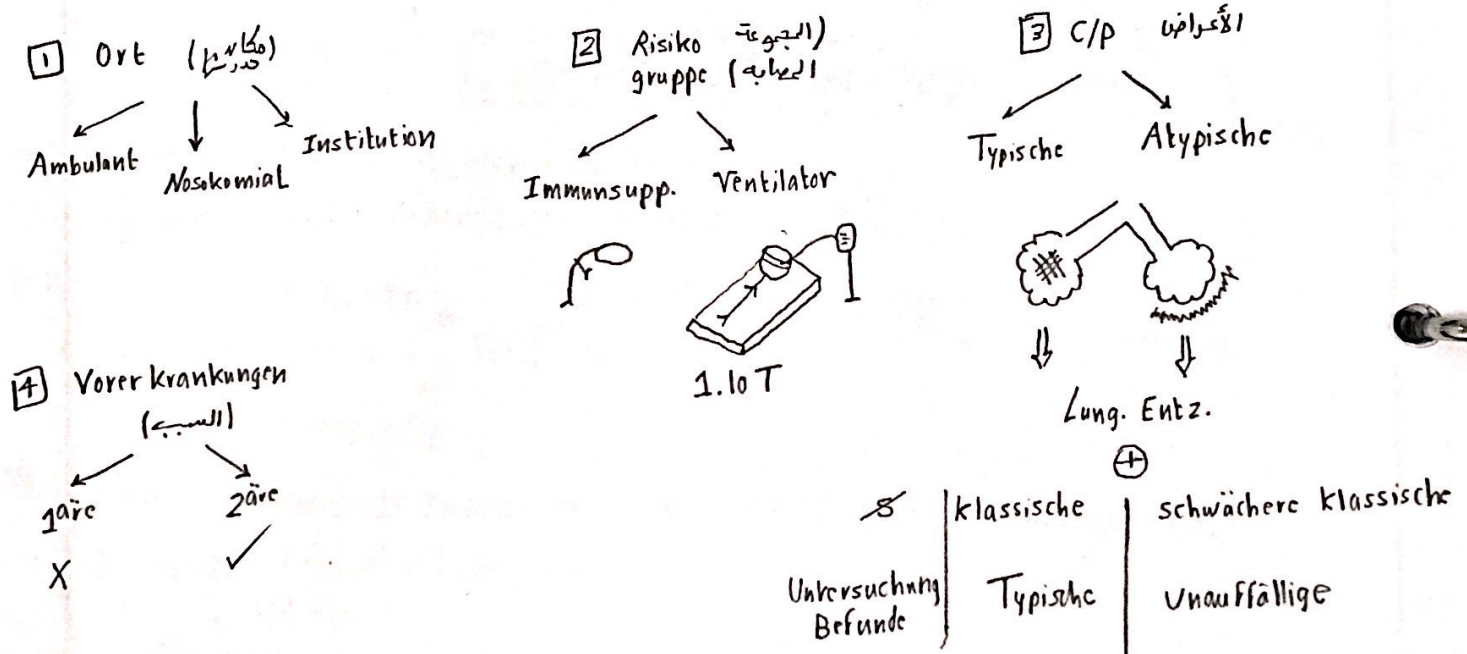 1 Ort
Ambulant
Nosokomial
Institution
2 Risiko (المجموعة
gruppe المصابه)
Immunsupp.
Ventilator
1.10 T
3 C/P الأعراض
Typische
Atypische
Lung. Entz.
+
klassische
schwächere klassische
Untersuchung
Befunde
Typische
Unauffällige
4 Vorerkrankungen
(السبب)
1äre
2äre
X
✓